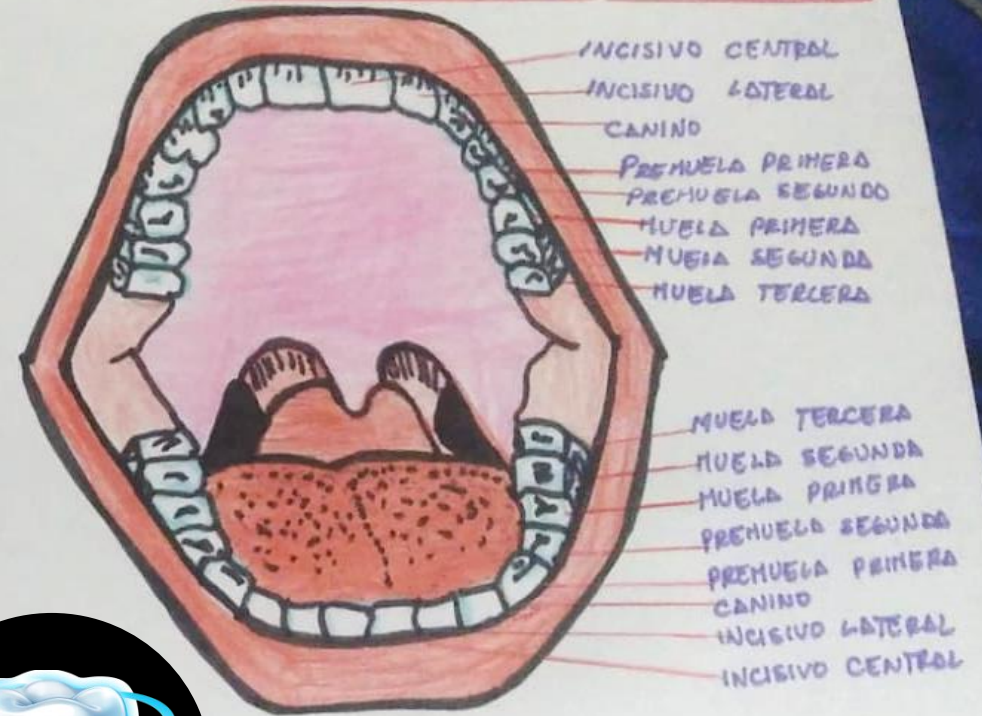 INCISIVO CENTRAL
INCISIVO LATERAL
CANINO
PREMUELA PRIMERA
PREMUELA SEGUNDO
MUELA PRIMERA
MUELA SEGUNDA
MUELA TERCERA
MUELA TERCERA
MUELA SEGUNDA
MUELA PRIMERA
PREMUELA SEGUNDA
PREMUELA PRIMERA
CANINO
INCISIVO LATERAL
INCISIVO CENTRAL